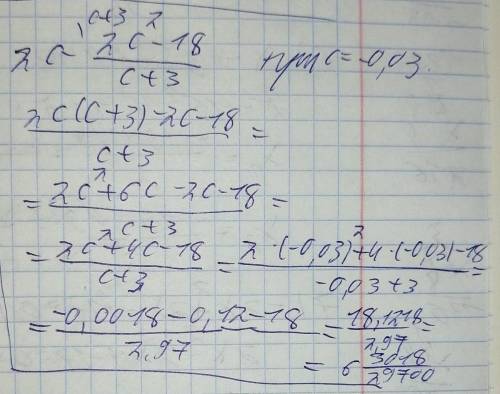 2c - \frac{2c^2-18}{c+3} при c=-0,03.
\frac{2c(c+3)-2c-18}{c+3} =
= \frac{2c^2+6c-2c-18}{c+3} =
= \frac{2c^2+4c-18}{c+3} = \frac{2·(-0,03)^2+4·(-0,03)-18}{-0,03+3} =
= \frac{-0,0018-0,12-18}{2,97} = \frac{18,1218}{2,97} =
= 6\frac{3018}{29700}